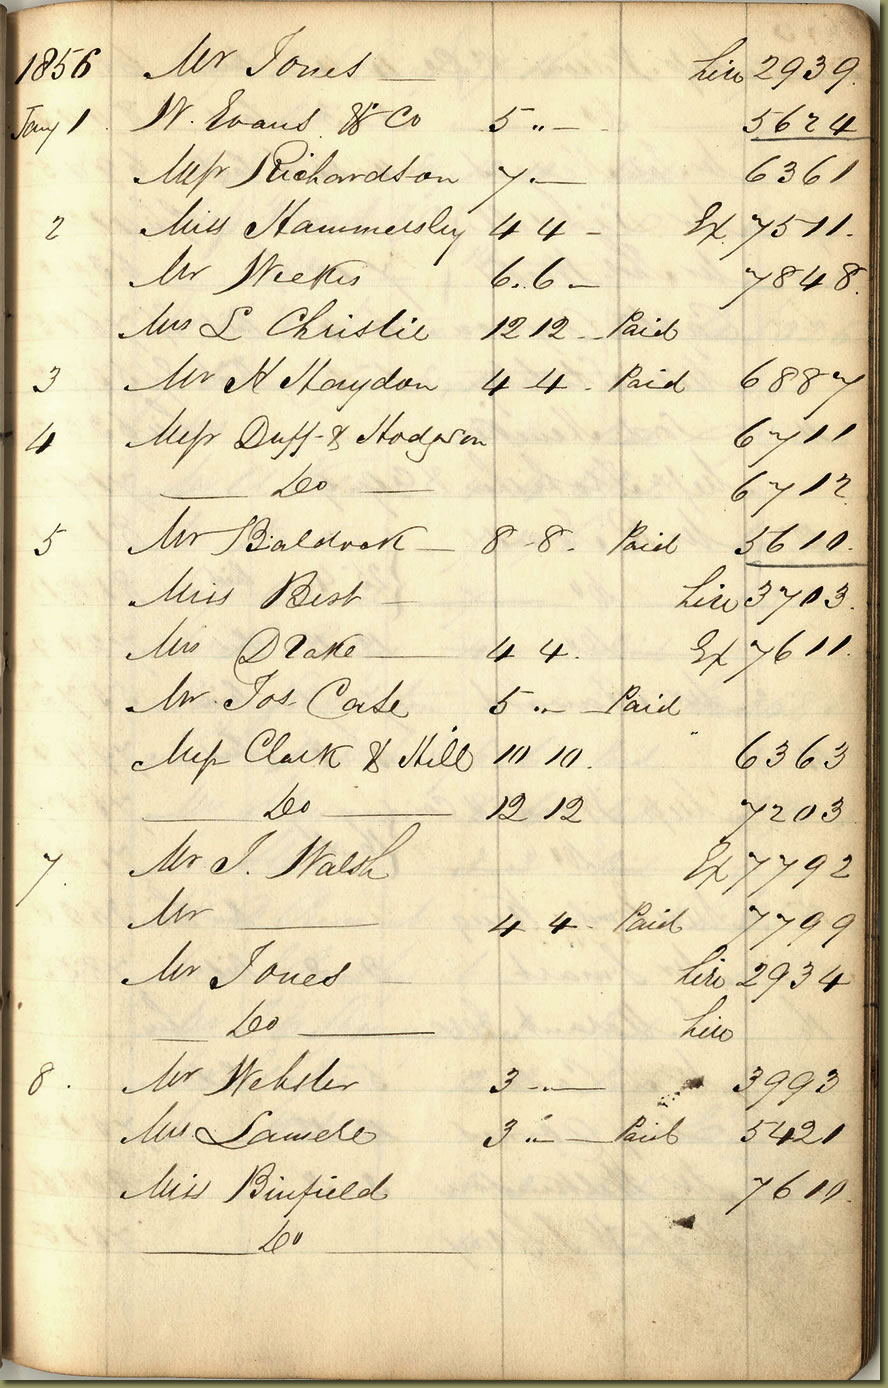 1856 Mr Jones — Liro 2939
Jany 1 W. Evans & Co 5 " — 5624
Messr Richardson 7 . — 6361
2 Miss Hammersley 4 4 - Ex 7511.
Mr Weekes 6..6 — 7848.
Mrs L Christie 12 12 - Paid
3 Mr H Haydon 4 4 . Paid 6887
4 Messr Duff & Hodgson 6711
— Do — 6712
5 Mr Baldock — 8 8. Paid 5610.
Miss Best — 3703.
Mrs Drake — 4 4. Ex 7611.
Mr Jos Case 5 " — Paid "
Messr Clark & Hill 10 10. 6363
— Do — 12 12 7203
7. Mr J. Walsh Ex 7792
Mr — 4 4 - Paid 7799
Mr Jones — 2934
— Do —
8. Mr Webster 3 - " — 3993
Mrs 3 " — Paid 5421
Miss Binfield 7610.
— Do —